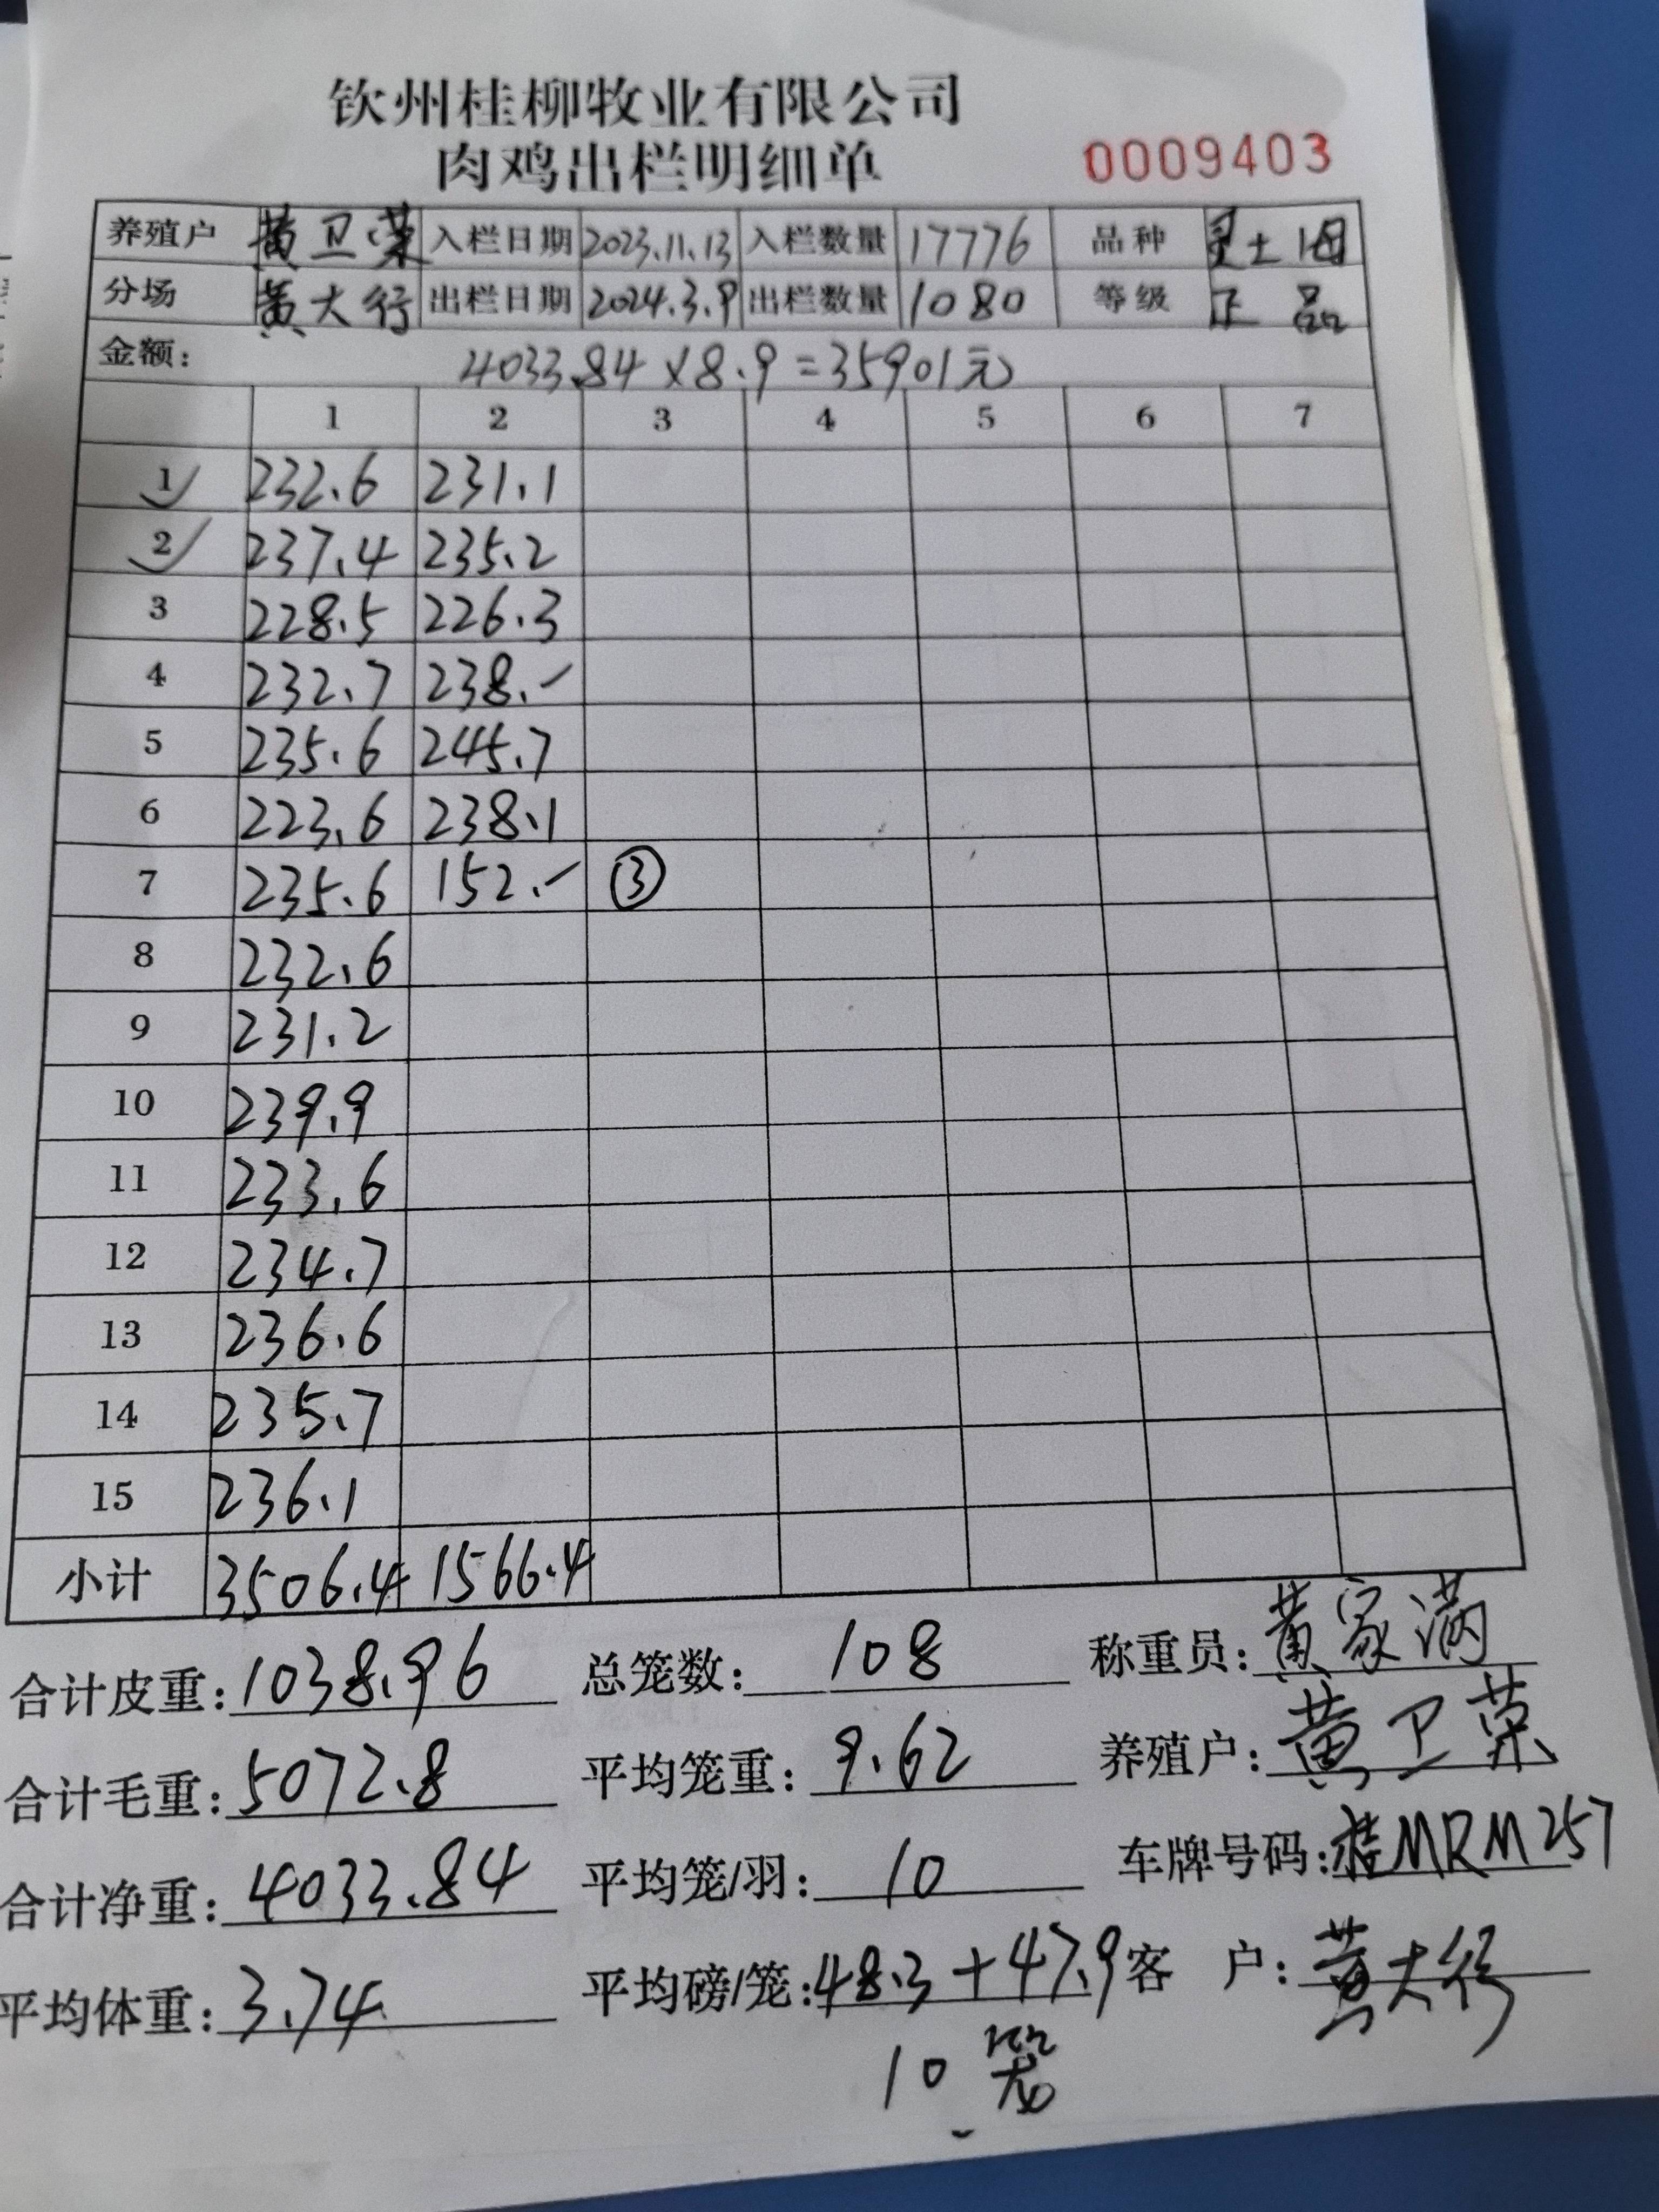 钦州桂柳牧业有限公司
肉鸡出栏明细单 0009403
养殖户 黄卫荣 入栏日期 2023.11.13 入栏数量 17776 品种 灵土1母
分场 黄大行 出栏日期 2024.3.9 出栏数量 1080 等级 正品
金额: 4033.84×8.9=35901元
1 2 3 4 5 6 7
1 232.6 231.1
2 237.4 235.2
3 228.5 226.3
4 232.7 238.-
5 235.6 245.7
6 223.6 238.1
7 235.6 152.- ③
8 232.6
9 231.2
10 239.9
11 233.6
12 234.7
13 236.6
14 235.7
15 236.1
小计 3506.4 1566.4
合计皮重: 1038.96 总笼数: 108 称重员: 黄家满
合计毛重: 5072.8 平均笼重: 9.62 养殖户: 黄卫荣
合计净重: 4033.84 平均笼/羽: 10 车牌号码: 桂MRM257
平均体重: 3.74 平均磅/笼: 48.3+47.9 客 户: 黄大行
10笼